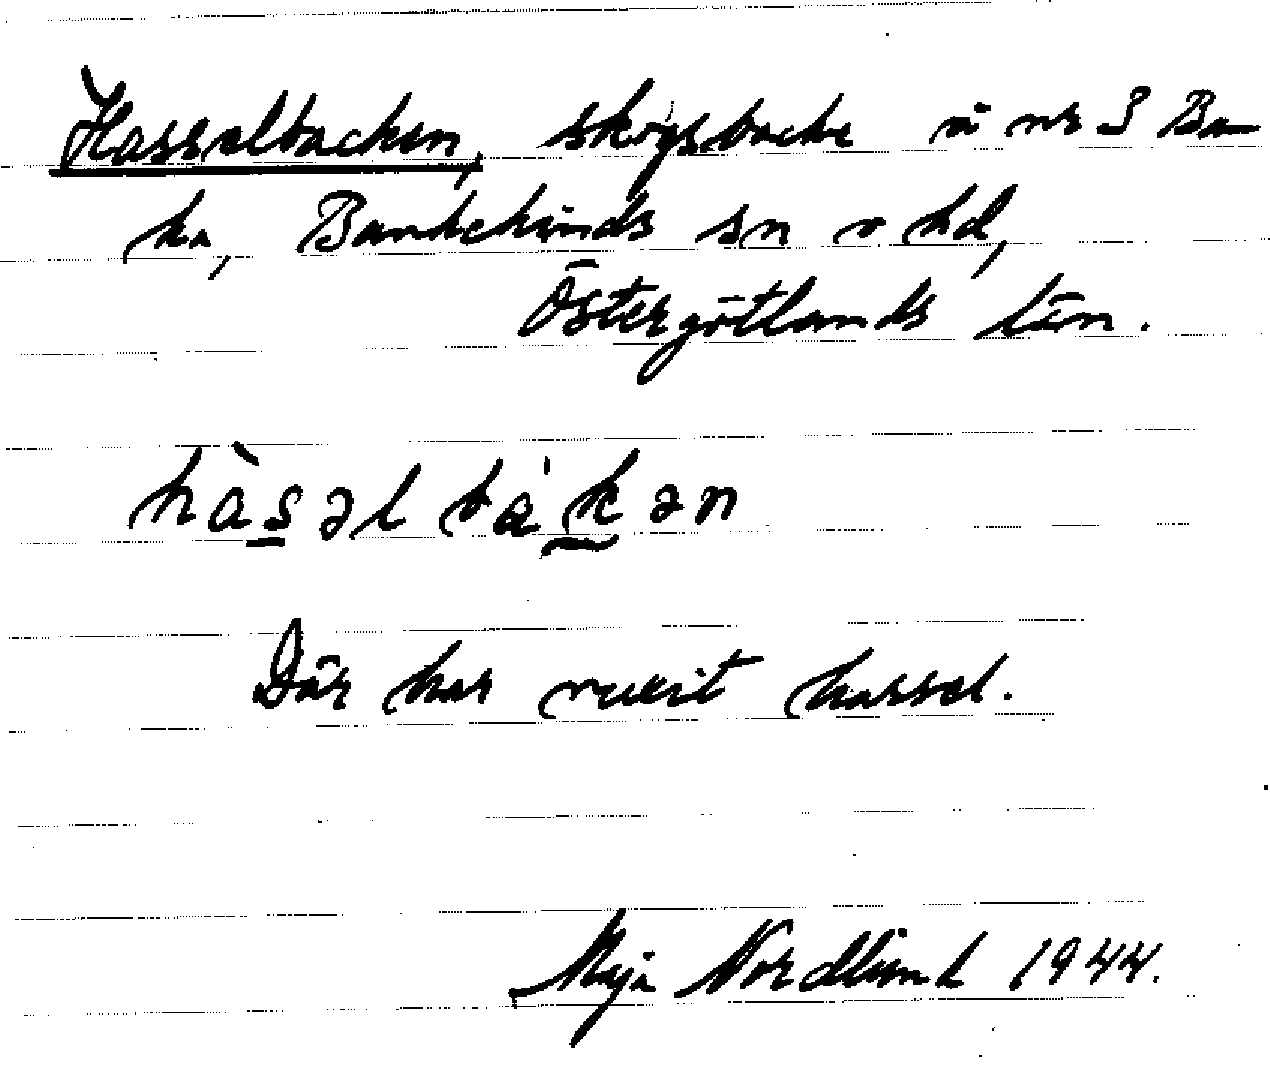 Hasselbacken, skogsbacke å nr 3 Ba-
ka, Bankekinds sn o hd,
Östergötlands län.
hàsəlbák̯ən
Där har vuxit hassel.
Maja Nordlund 1944.